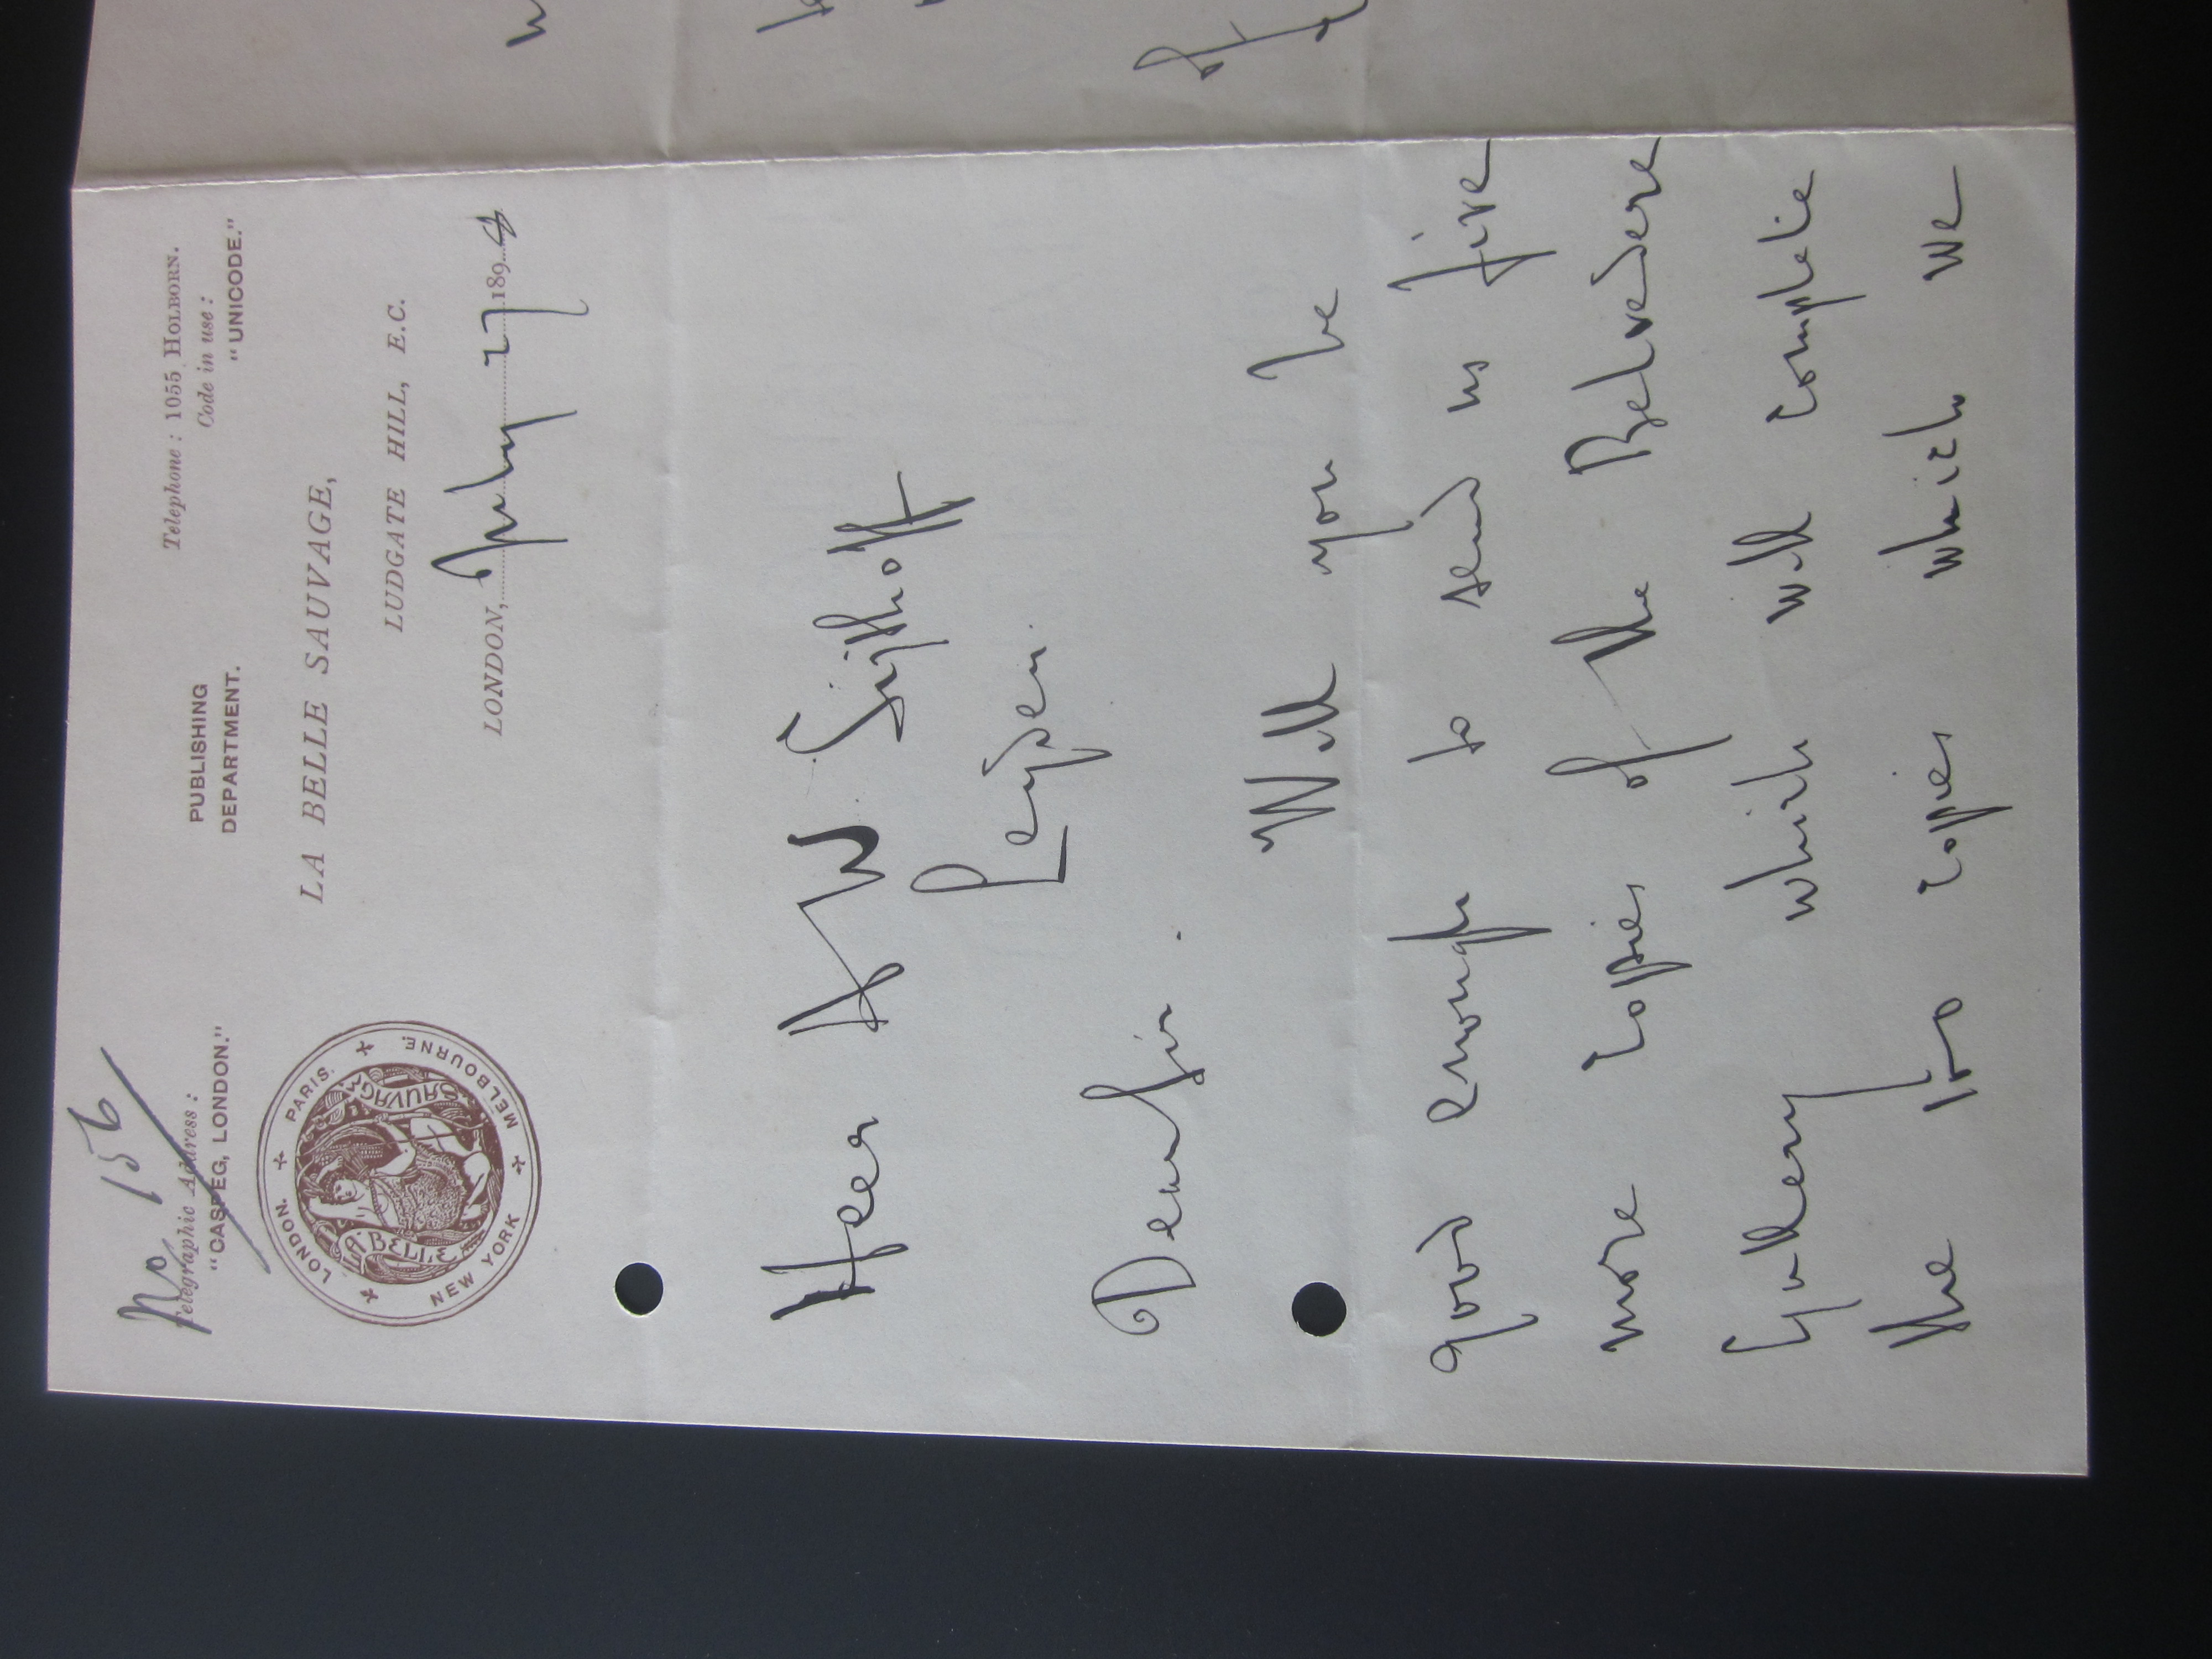 No 156
Telegraphic Address :
"CASPEG, LONDON."
PUBLISHING
DEPARTMENT.
Telephone : 1055 HOLBORN.
Code in use :
"UNICODE."
LONDON. PARIS. MELBOURNE. NEW YORK
LA BELLE SAUVAGE
LA BELLE SAUVAGE,
LUDGATE HILL, E.C.
LONDON, July 27 1898
Heer A W Sijthoff
Leyden.
Dear Sir.
Will you be
good enough to send us five
more copies of the Belvedere
Gallery which will complete
the 100 copies which we
of